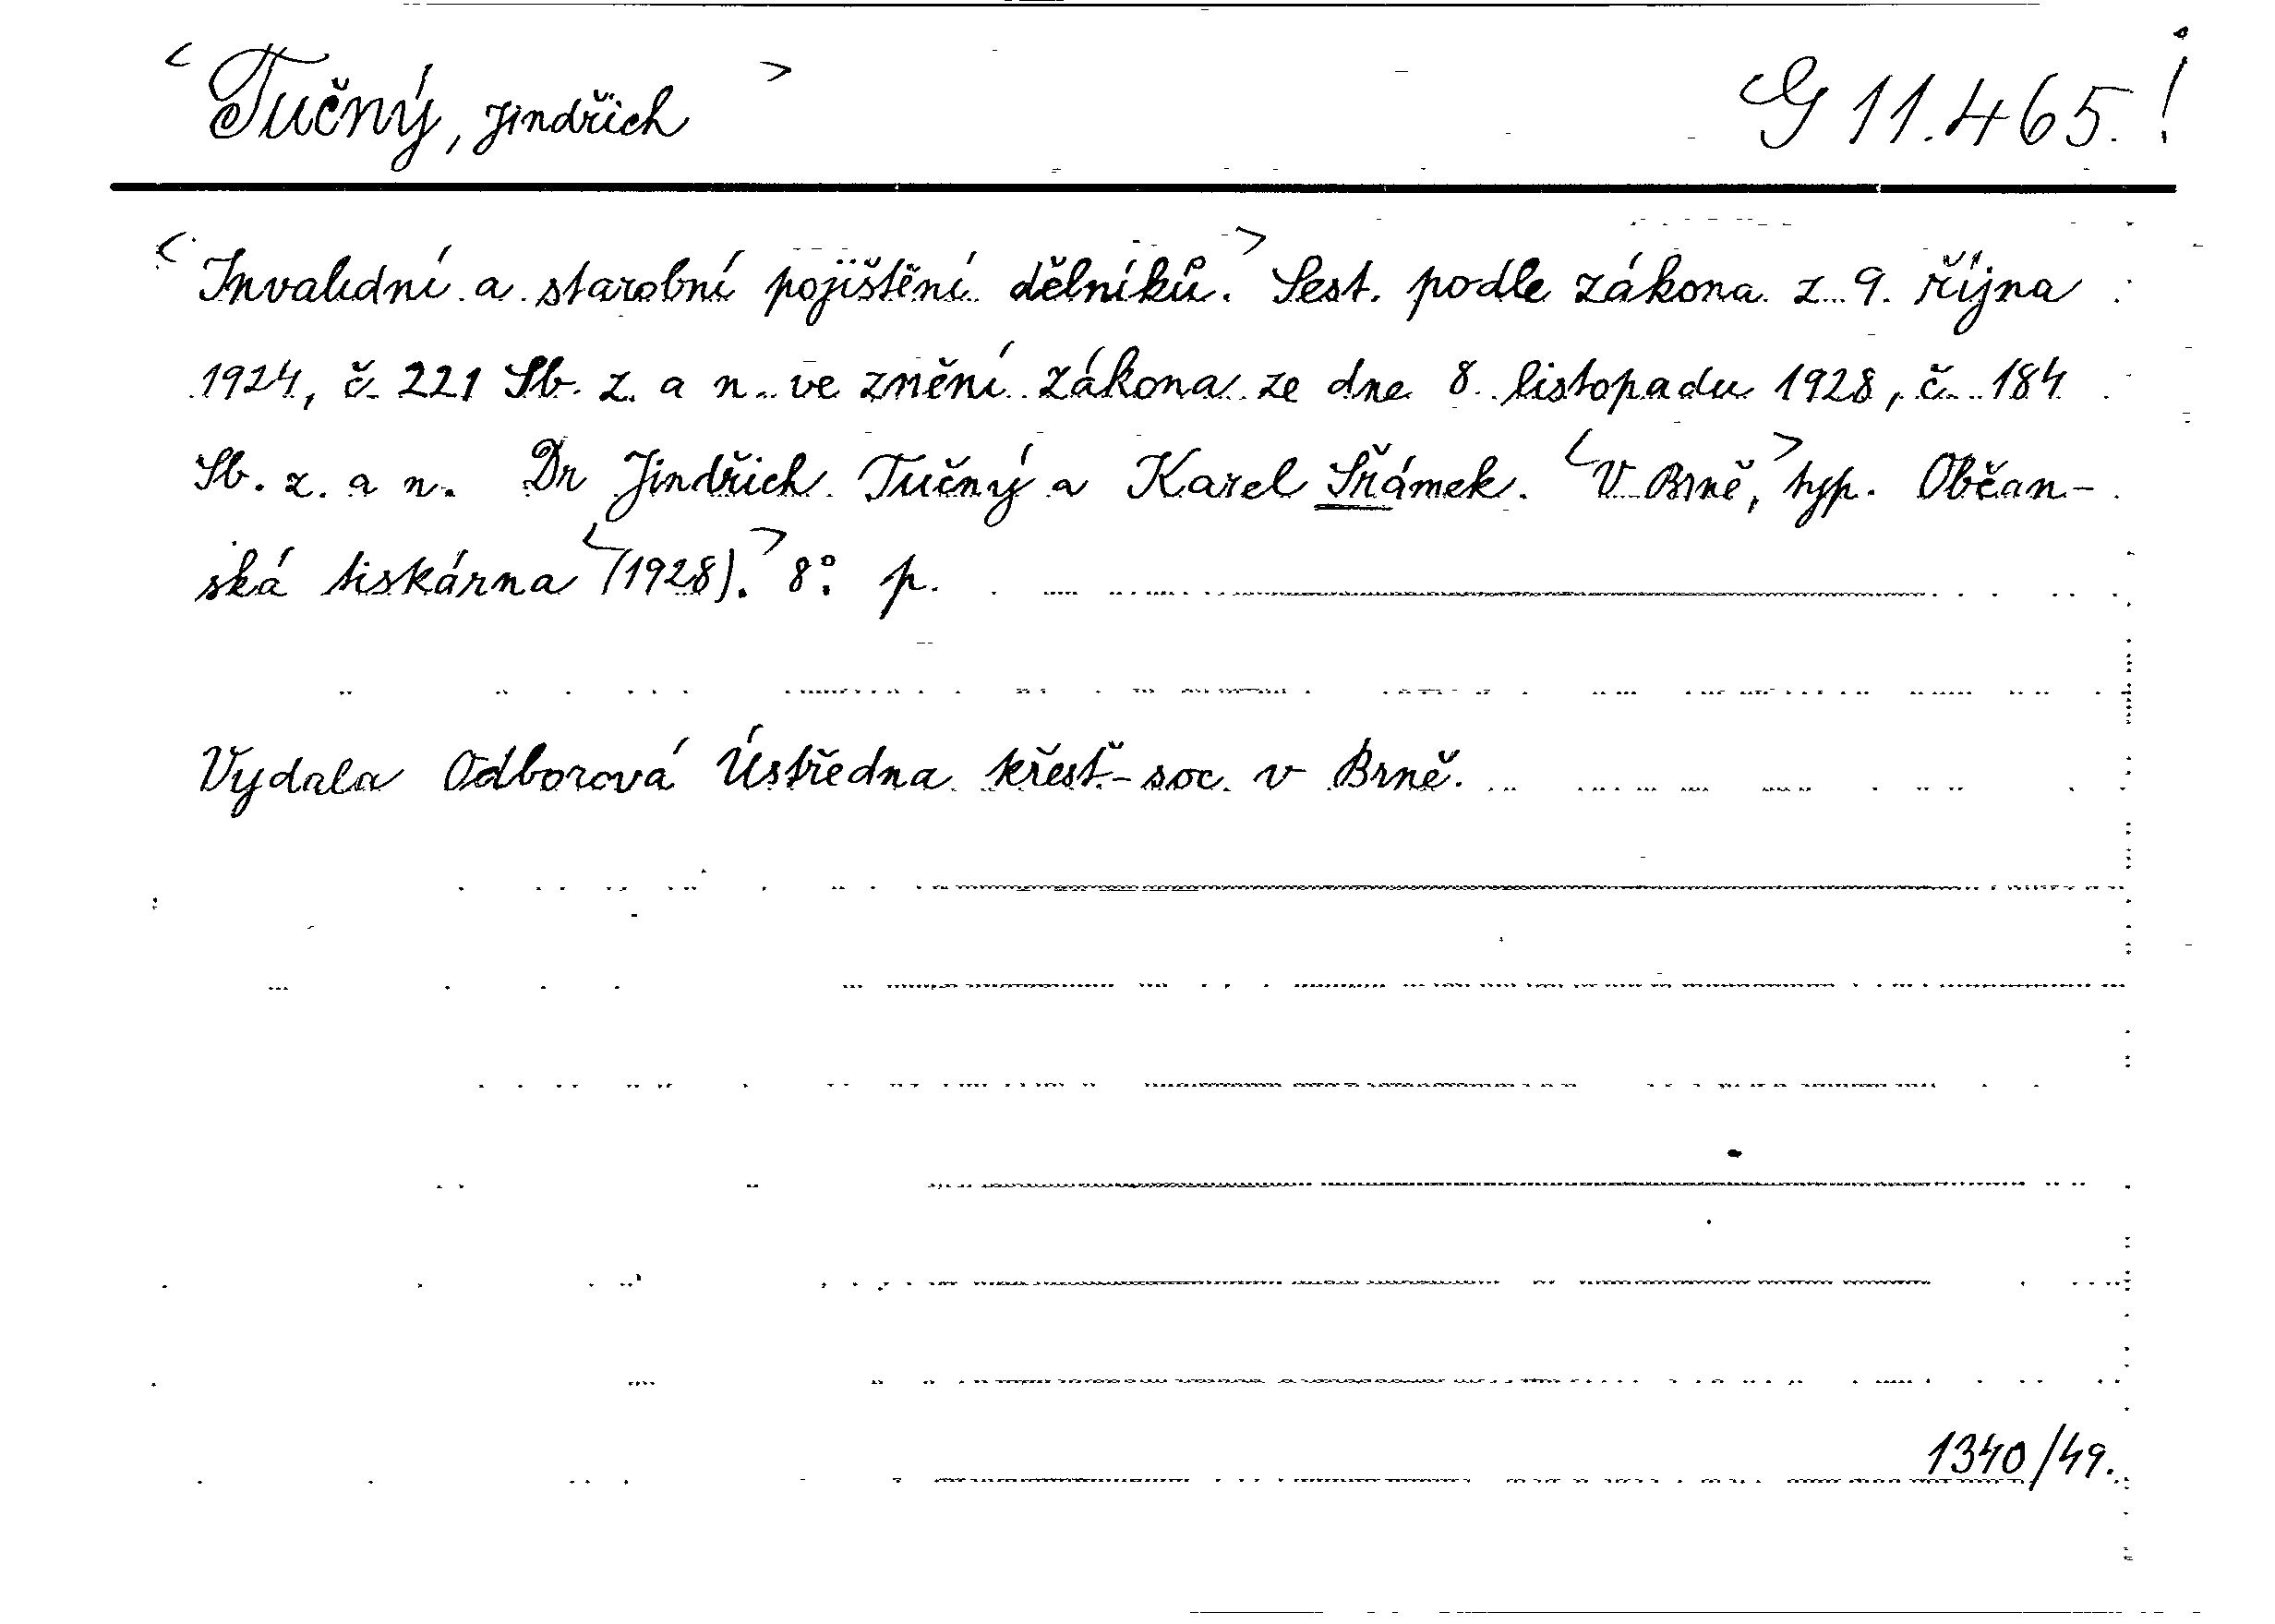 <Tučný, Jindřich> G 11.465.!
<Invalidní a starobní pojištění dělníků.> Sest. podle zákona z 9. října
1924, č. 221 Sb. z. a n. ve znění zákona ze dne 8. listopadu 1928, č. 184
Sb. z. a n. Dr Jindřich Tučný a Karel Šrámek. <V Brně,> typ. Občan-
ská tiskárna <(1928).> 8°. p.
Vydala Odborová Ústředna křesť.-soc. v Brně.
1340/49.